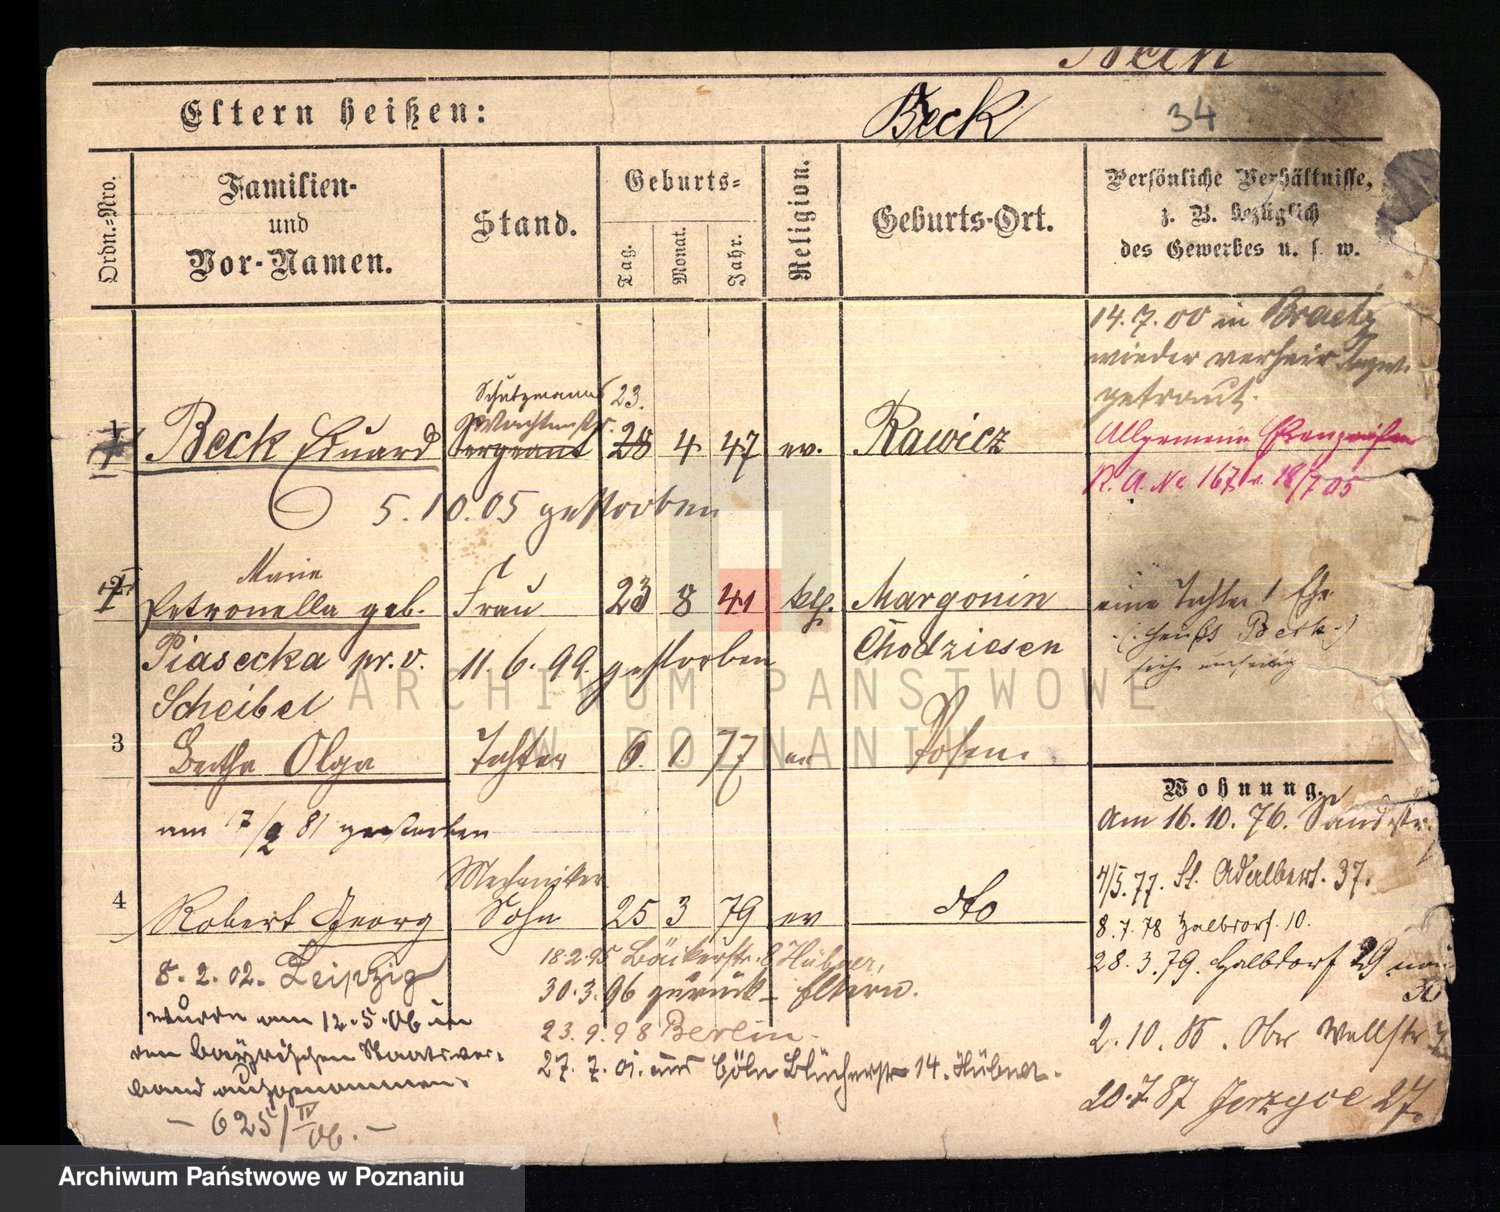 Beck
Eltern heißen:
Beck
34
Ordn.-Nro.
Familien-
und
Vor-Namen.
Stand.
Geburts-
Tag.
Monat.
Jahr.
Religion.
Geburts-Ort.
Persönliche Verhältnisse,
z. B. bezüglich
des Gewerbes u. s. w.
14.7.00 in
wieder verheir.
getraut.
1
Beck Eduard
Schutzmann
Wachtmstr.
Sergeant
23.
28 4 47 ev.
Rawicz
Allgemein
R. A. No 167 v. 18/7 05
5.10.05 gestorben
2
Marie
Petronella geb.
Piasecka pr. v.
Scheibel
Frau
23 8 41 kth.
Margonin
Chodziesen
11.6.99. gestorben
eine Tochter 1 Ehe
(: heißt Beck :)
siehe umseitig
3
Bertha Olga
Tochter
6. 1. 77 ev
Posen.
am 7/2 81 gestorben
Wohnung.
Am 16.10.76. Sandstr.
4/5.77. St. Adalbert. 37.
8.7.78 Halbdorf. 10.
28.3.79. Halbdorf 29
30
2.10.86. Ober Wallstr
20.7.87 Jerzyce 27.
4
Robert Georg
Mechaniker
Sohn
25 3 79 ev
dto
8.2.02. Leipzig
wurde am 12.5.06 in
den bayrischen Staatsver-
band aufgenommen.
- 625/IV 06. -
18.2.95 Bäckerstr. 8 Hübner,
30.3.96 zurück - Eltern.
23.9.98 Berlin.
27.7.01. aus Cöln Blücherstr 14. Hübner.
ARCHIWUM PAŃSTWOWE
W POZNANIU
Archiwum Państwowe w Poznaniu